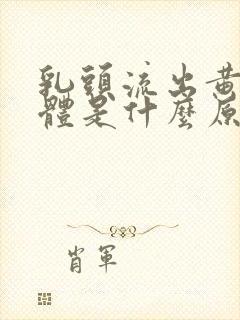 乳頭流出黃
體是什麼原
肖軍